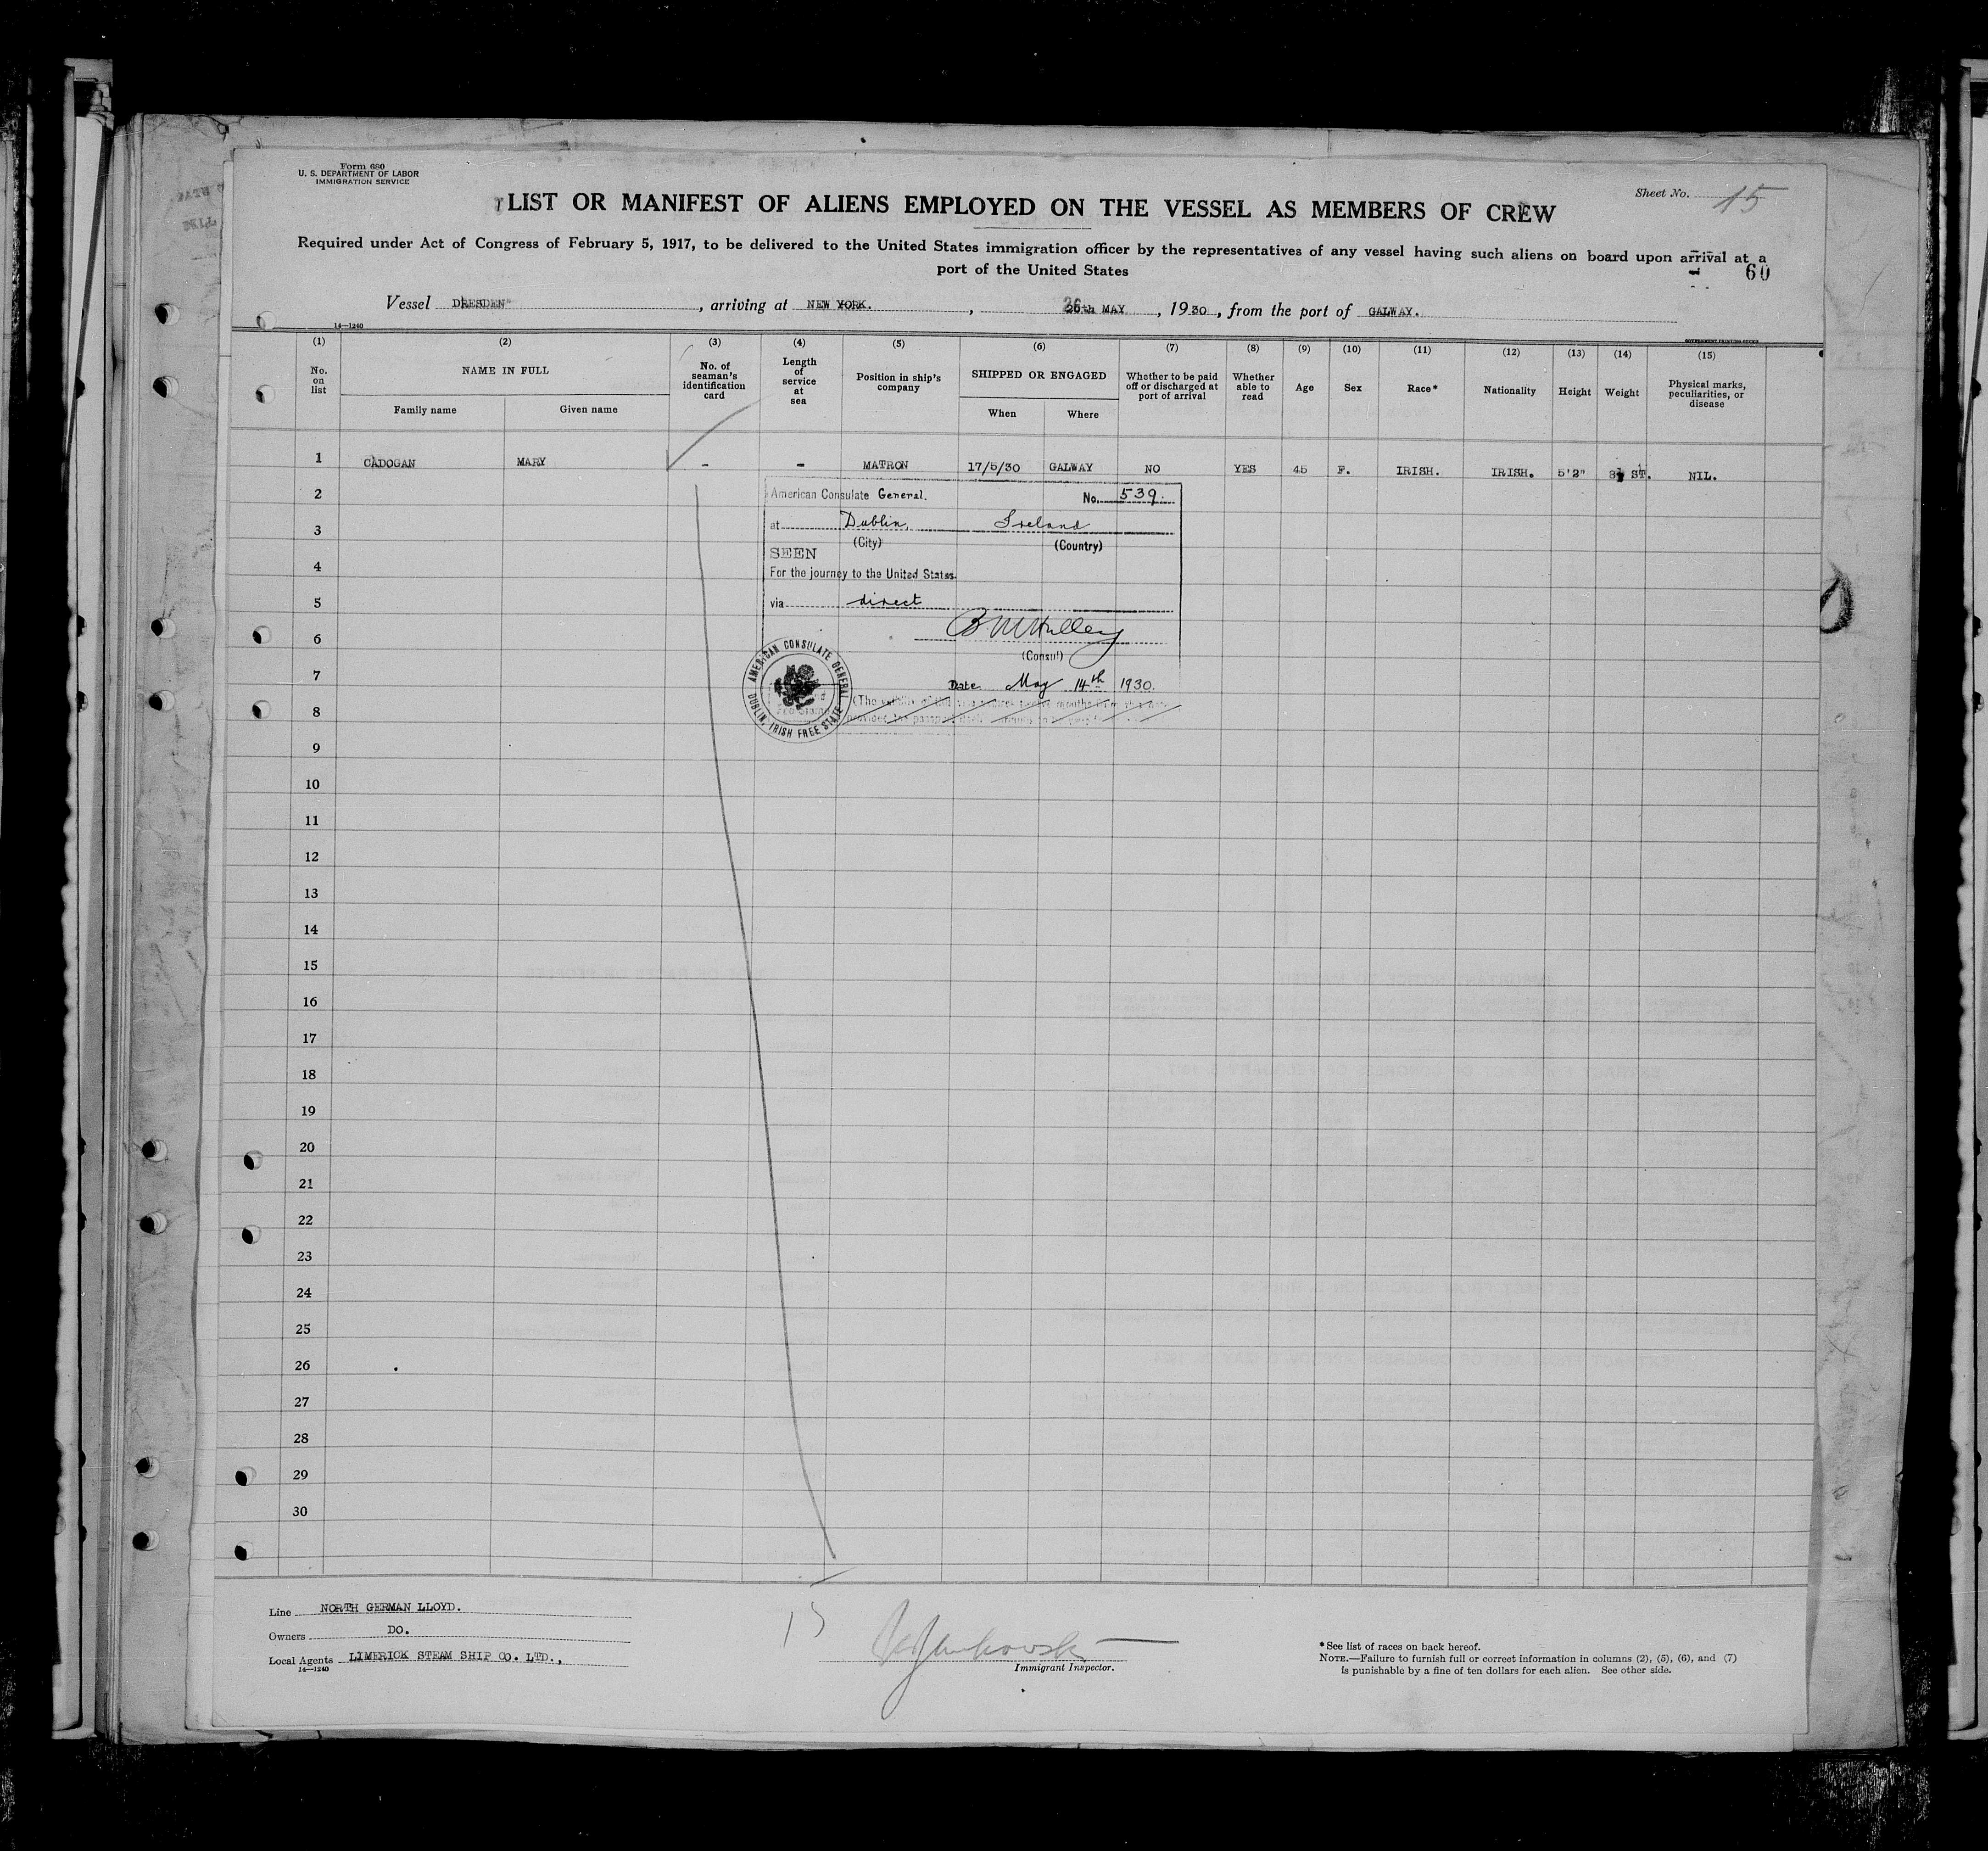 Form 680
U. S. DEPARTMENT OF LABOR
IMMIGRATION SERVICE
Sheet No. 15
LIST OR MANIFEST OF ALIENS EMPLOYED ON THE VESSEL AS MEMBERS OF CREW
Required under Act of Congress of February 5, 1917, to be delivered to the United States immigration officer by the representatives of any vessel having such aliens on board upon arrival at a
port of the United States
60
Vessel DRESDEN" , arriving at NEW YORK. , 26th MAY , 1930 , from the port of GALWAY.
14—1240
GOVERNMENT PRINTING OFFICE
(1) (2) (3) (4) (5) (6) (7) (8) (9) (10) (11) (12) (13) (14) (15)
No. on list NAME IN FULL Family name Given name No. of seaman's identification card Length of service at sea Position in ship's company SHIPPED OR ENGAGED When Where Whether to be paid off or discharged at port of arrival Whether able to read Age Sex Race* Nationality Height Weight Physical marks, peculiarities, or disease
1 CADOGAN MARY - - MATRON 17/5/30 GALWAY NO YES 45 F. IRISH. IRISH. 5'2" ST. NIL.
2
American Consulate General. No. 539.
3
at Dublin, Ireland
(City) (Country)
SEEN
4
For the journey to the United States.
5
via direct
6
(Consul)
7
Date May 14th 1930.
8
AMERICAN CONSULATE GENERAL
DUBLIN, IRISH FREE STATE
9
10
11
12
13
14
15
16
17
18
19
20
21
22
23
24
25
26
27
28
29
30
Line NORTH GERMAN LLOYD.
Owners DO.
Local Agents LIMERICK STEAM SHIP CO. LTD.,
14—1240
15
Immigrant Inspector.
*See list of races on back hereof.
NOTE.—Failure to furnish full or correct information in columns (2), (5), (6), and (7)
is punishable by a fine of ten dollars for each alien. See other side.